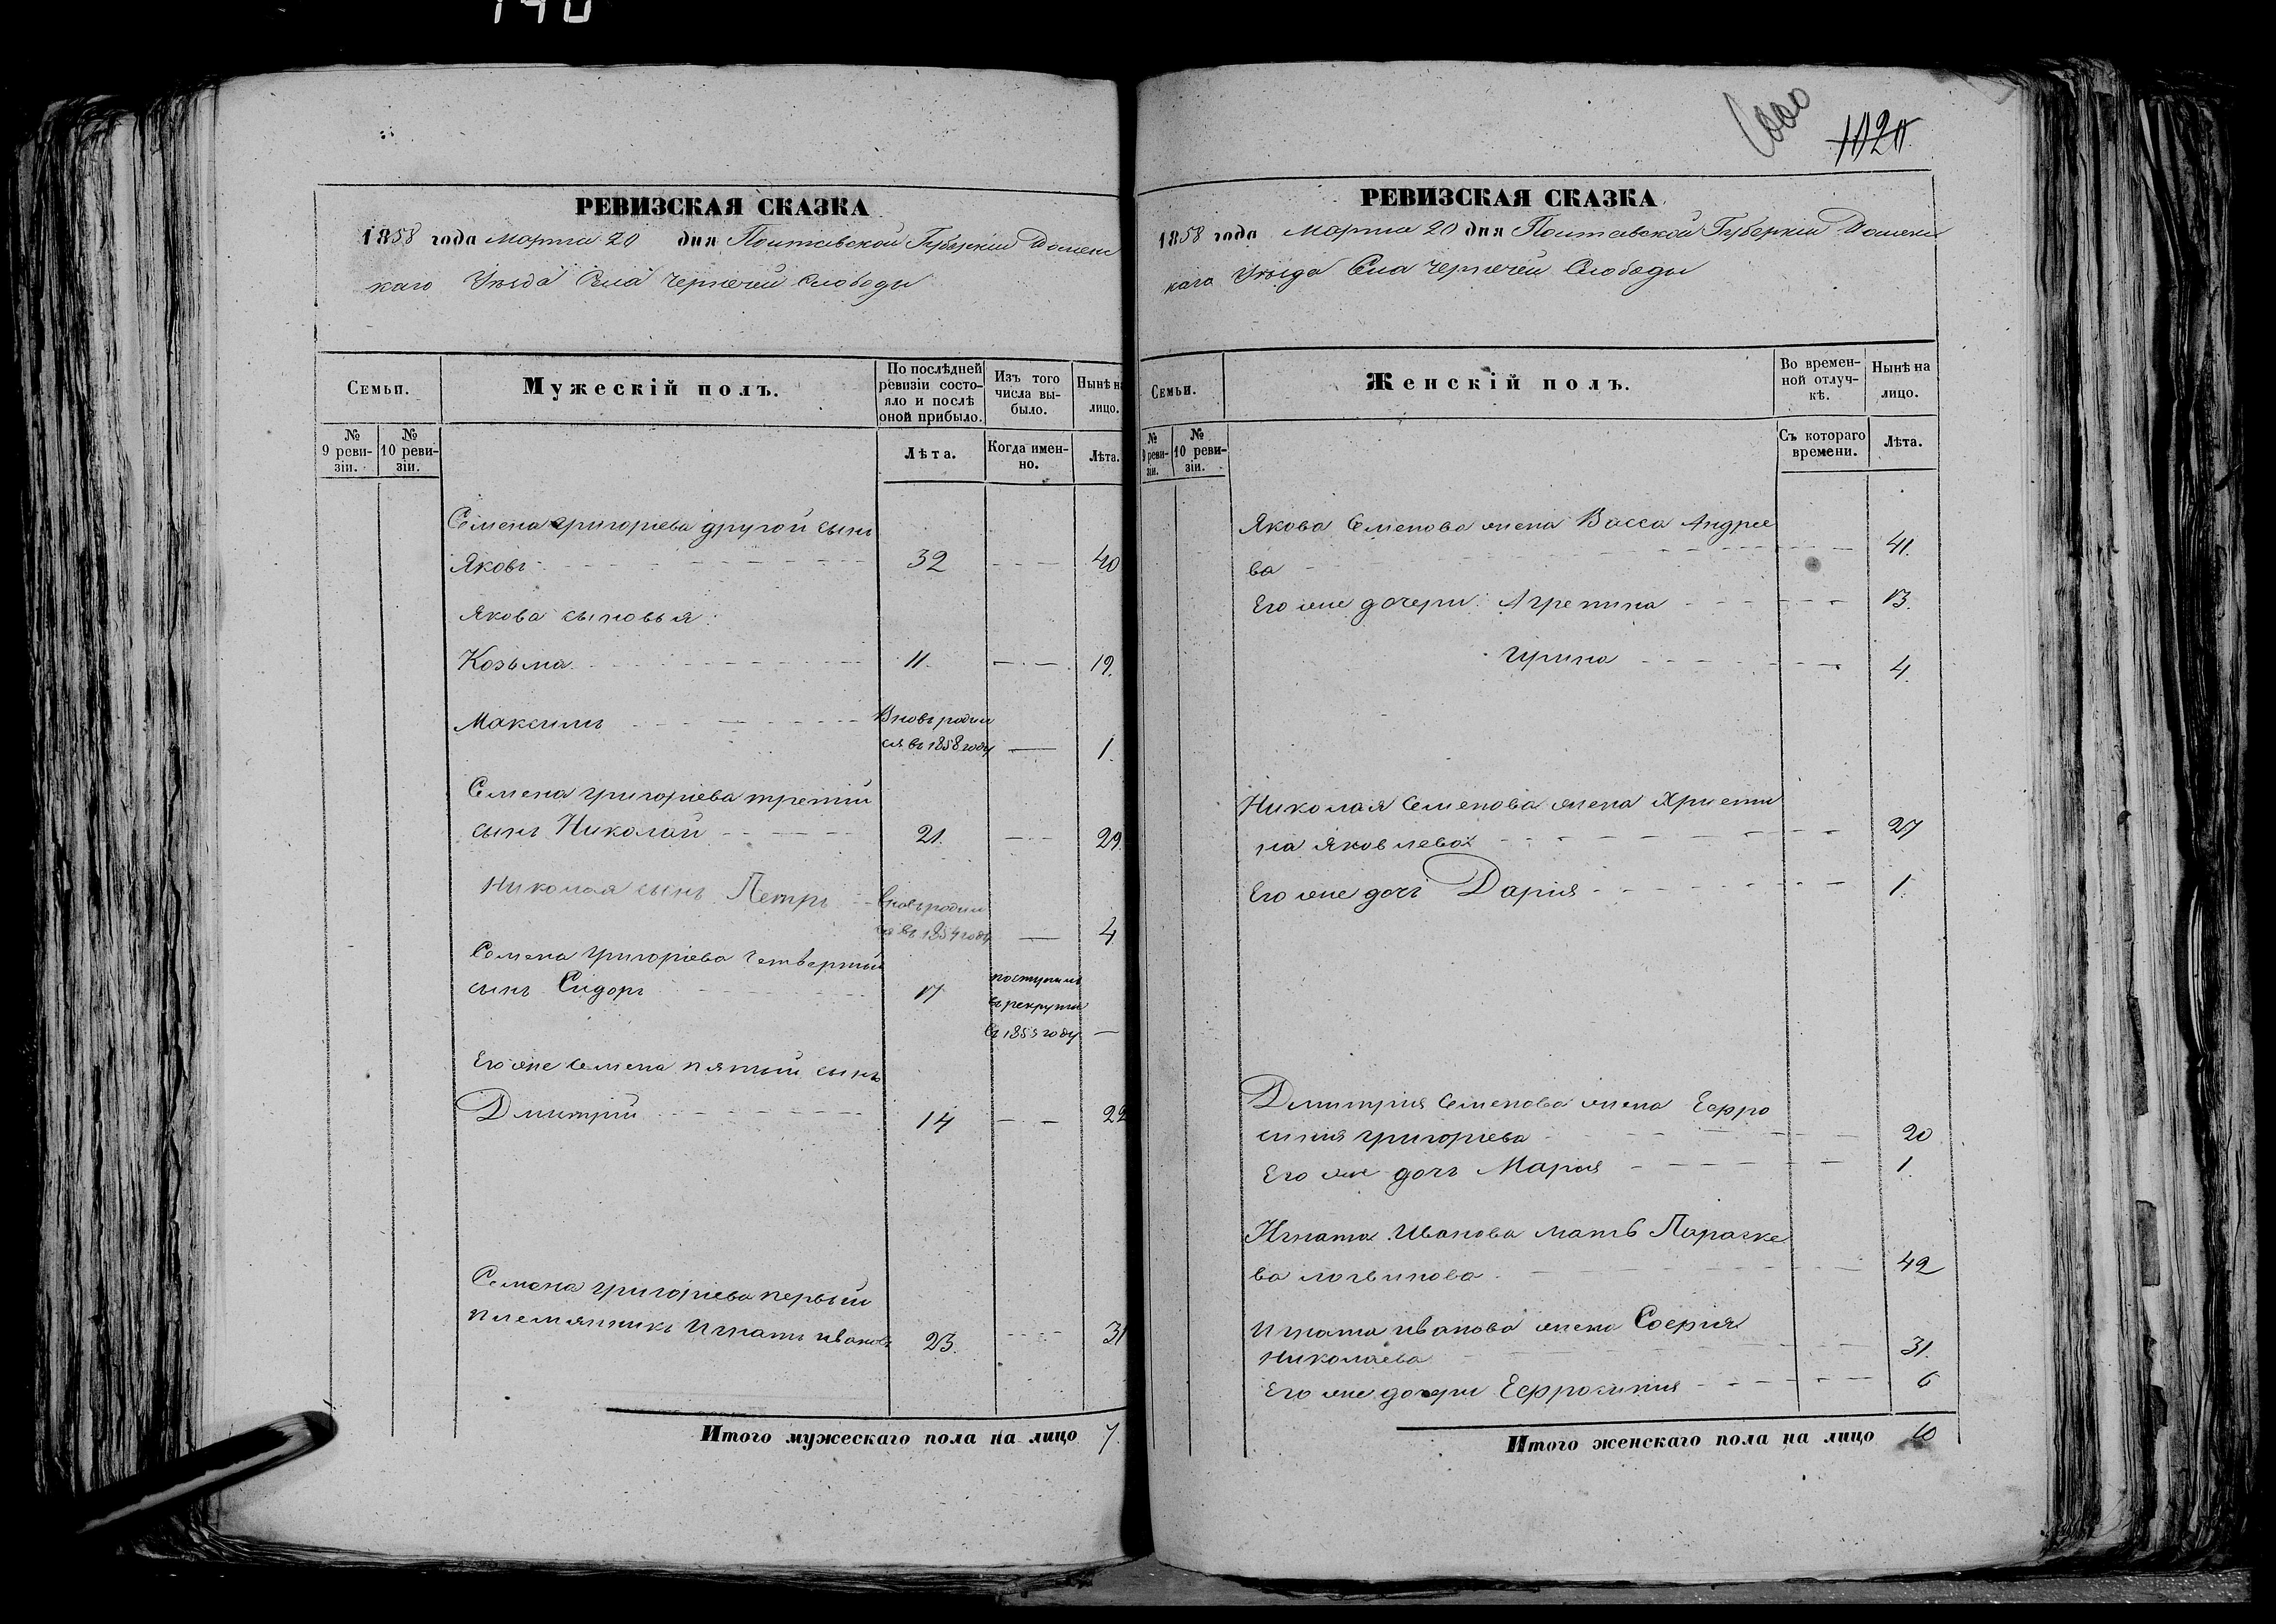 140
РЕВИЗСКАЯ СКАЗКА
1858 года Марта 20 дня Полтавской Губернии Роменс
каго Уезда Села Чернечей Слободы
Семьи.
Мужескій полъ.
По послѣдней ревизіи состояло и послѣ оной прибыло.
Изъ того числа выбыло.
Нынѣ на лицо.
№ 9 ревизіи.
№ 10 ревизіи.
Лѣта.
Когда именно.
Лѣта.
Семена Григорiева другой сынъ
Яковъ 32 40
Якова сыновья:
Козьма 11 19.
Максимъ Вновь родил
ся въ 1858 году 1
Семена Григорiева третiй
сынъ Николай 21. 29.
Николая сынъ Петръ Вновь родил
ся въ 1854 году 4
Семена Григорiева четвертый
сынъ Сидоръ 17 поступилъ
въ рекруты
въ 1855 году
Его же Семена пятый сынъ
Дмитрiй 14 22
Семена Григорiева первый
племянникъ Игнатъ Ивановъ 23. 31
Итого мужескаго пола на лицо 7.
1000
1020
РЕВИЗСКАЯ СКАЗКА
1858 года Марта 20 дня Полтавской Губернии Роменс
каго Уезда Села Чернечей Слободы
Семьи.
Женскій полъ.
Во временной отлучкѣ.
Нынѣ на лицо.
№ 9 ревизіи.
№ 10 ревизіи.
Съ котораго времени.
Лѣта.
Якова Семенова жена Васса Андрее
ва 41.
Его же дочери: Агрепина 13.
Ирина 4.
Николая Семенова жена Христи
на Яковлева 27
Его же дочь Дарiя 1.
Дмитрия Семенова жена Ефро
синия Григорiева 20
Его же дочь Мария 1.
Игната Иванова мать Параске
ва Логвинова 42
Игната Иванова жена Софрия
Николаева 31.
Его же дочери Ефросиния 6
Итого женскаго пола на лицо 10